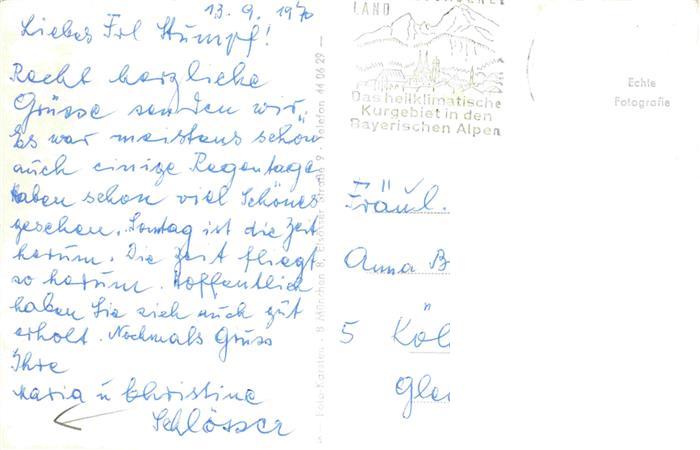 13.9.1970
Liebes Frl Stumpf!
Recht herzliche
Grüsse senden wir.
Es war meistens schön
auch einige Regentage
haben schon viel Schönes
gesehen. Sontag ist die Zeit
herum. Die Zeit fliegt
so herum. Hoffentlich
haben Sie sich auch gut
erholt. Nochmals Gruss
Ihre
Maria u Christine
Schlösser
LAND
Das heilklimatische
Kurgebiet in den
Bayerischen Alpen
Echte
Fotografie
Fräul.
Anna B
5 Köl
Gle
8 München 8, Straße 9 - Telefon 44 06 29